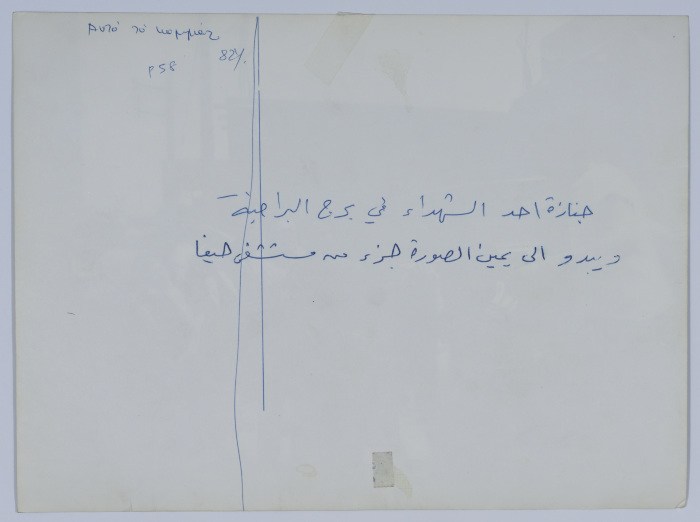 Αυτό το κομμάτι
82%
P58
جنازة احد الشهداء في برج البراجنة
ويبدو الى يمين الصورة جزء من مستشفى حيفا